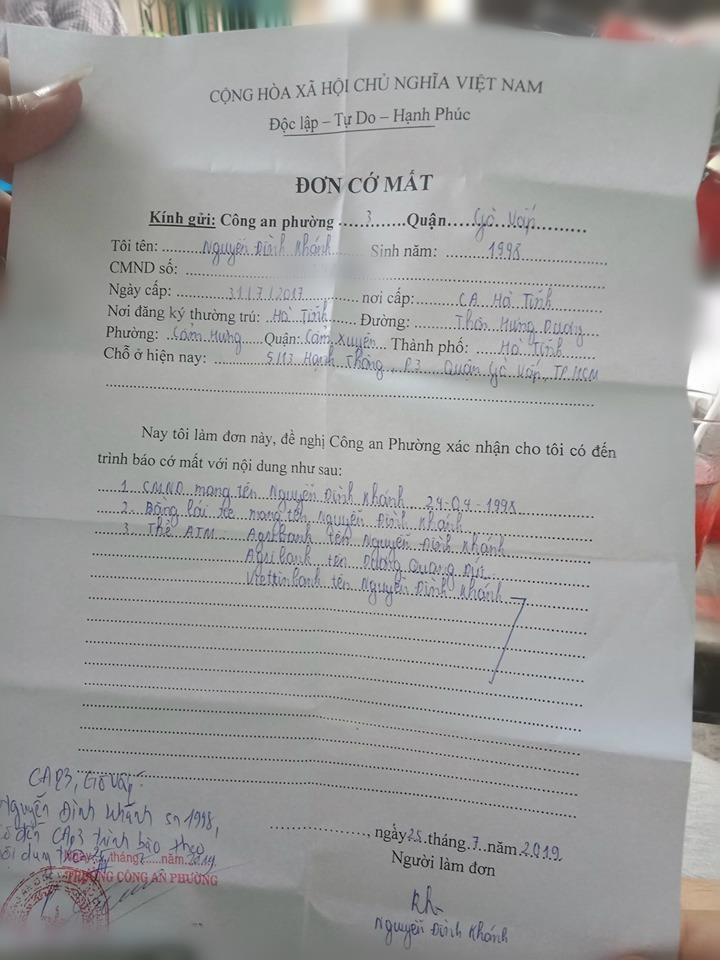 CỘNG HÒA XÃ HỘI CHỦ NGHĨA VIỆT NAM
Độc lập – Tự Do – Hạnh Phúc
ĐƠN CỚ MẤT
Kính gửi: Công an phường ....3.......Quận.....Gò Vấp..........
Tôi tên: .........Nguyễn Đình Khánh Sinh năm: .........1998..........
CMND số: ..........
Ngày cấp: ............31/7/2017............ nơi cấp:.........CA Hà Tĩnh
Nơi đăng ký thường trú: ..Hà Tĩnh....... Đường: .........Thôn Hưng Dương
Phường: ..Cẩm Hưng....Quận: Cẩm Xuyên... Thành phố: ....Hà Tĩnh......
Chỗ ở hiện nay: ..........5/13 Hạnh Thông, P.3 Quận Gò Vấp, TP.HCM
Nay tôi làm đơn này, đề nghị Công an Phường xác nhận cho tôi có đến
trình báo cớ mất với nội dung như sau:
1. CMND mang tên Nguyễn Đình Khánh 24-04-1998
2. Bằng lái xe mang tên Nguyễn Đình Khánh
3. Thẻ ATM. Agribank tên Nguyễn Đình Khánh
Agribank tên Dương Quang
Viettinbank tên Nguyễn Đình Khánh
CAP3, Gò Vấp
Nguyễn Đình Khánh sn 1998,
đến CAP3 trình báo theo
dung
Ngày tháng năm 2019
TRƯỞNG CÔNG AN PHƯỜNG
...................., ngày 25 tháng 7 năm 2019
Người làm đơn
Kh
Nguyễn Đình Khánh